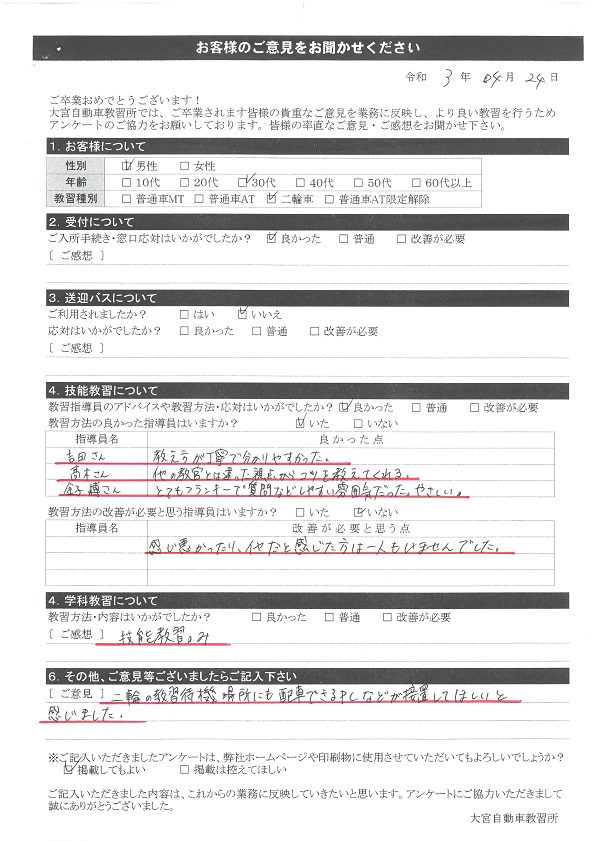 お客様のご意見をお聞かせください
令和 3 年 04 月 24 日
ご卒業おめでとうございます！
大宮自動車教習所では、ご卒業されます皆様の貴重なご意見を業務に反映し、より良い教習を行うため
アンケートのご協力をお願いしております。皆様の率直なご意見・ご感想をお聞かせ下さい。
1. お客様について
性別 ☑男性 □女性
年齢 □10代 □20代 ☑30代 □40代 □50代 □60代以上
教習種別 □普通車MT □普通車AT ☑二輪車 □普通車AT限定解除
2. 受付について
ご入所手続き・窓口応対はいかがでしたか？ ☑良かった □普通 □改善が必要
[ ご感想 ]
3. 送迎バスについて
ご利用されましたか？ □はい ☑いいえ
応対はいかがでしたか？ □良かった □普通 □改善が必要
[ ご感想 ]
4. 技能教習について
教習指導員のアドバイスや教習方法・応対はいかがでしたか？ ☑良かった □普通 □改善が必要
教習方法の良かった指導員はいますか？ ☑いた □いない
指導員名 良かった点
吉田さん 教え方が丁寧で分かりやすかった。
高木さん 他の教官とは違った視点からコツを教えてくれる。
金子 さん とてもフランキーで質問などしやすい雰囲気だった。やさしい。
教習方法の改善が必要と思う指導員はいますか？ □いた ☑いない
指導員名 改善が必要と思う点
感じ悪かったり、イヤだと感じた方は一人もいませんでした。
4. 学科教習について
教習方法・内容はいかがでしたか？ □良かった □普通 □改善が必要
[ ご感想 ] 技能教習のみ
6. その他、ご意見等ございましたらご記入下さい
[ ご意見 ] 二輪の教習待機場所にも配車できる などが 置してほしいと
感じました。
※ご記入いただきましたアンケートは、弊社ホームページや印刷物に使用させていただいてもよろしいでしょうか？
☑掲載してもよい □掲載は控えてほしい
ご記入いただきました内容は、これからの業務に反映していきたいと思います。アンケートにご協力いただきまして
誠にありがとうございました。
大宮自動車教習所